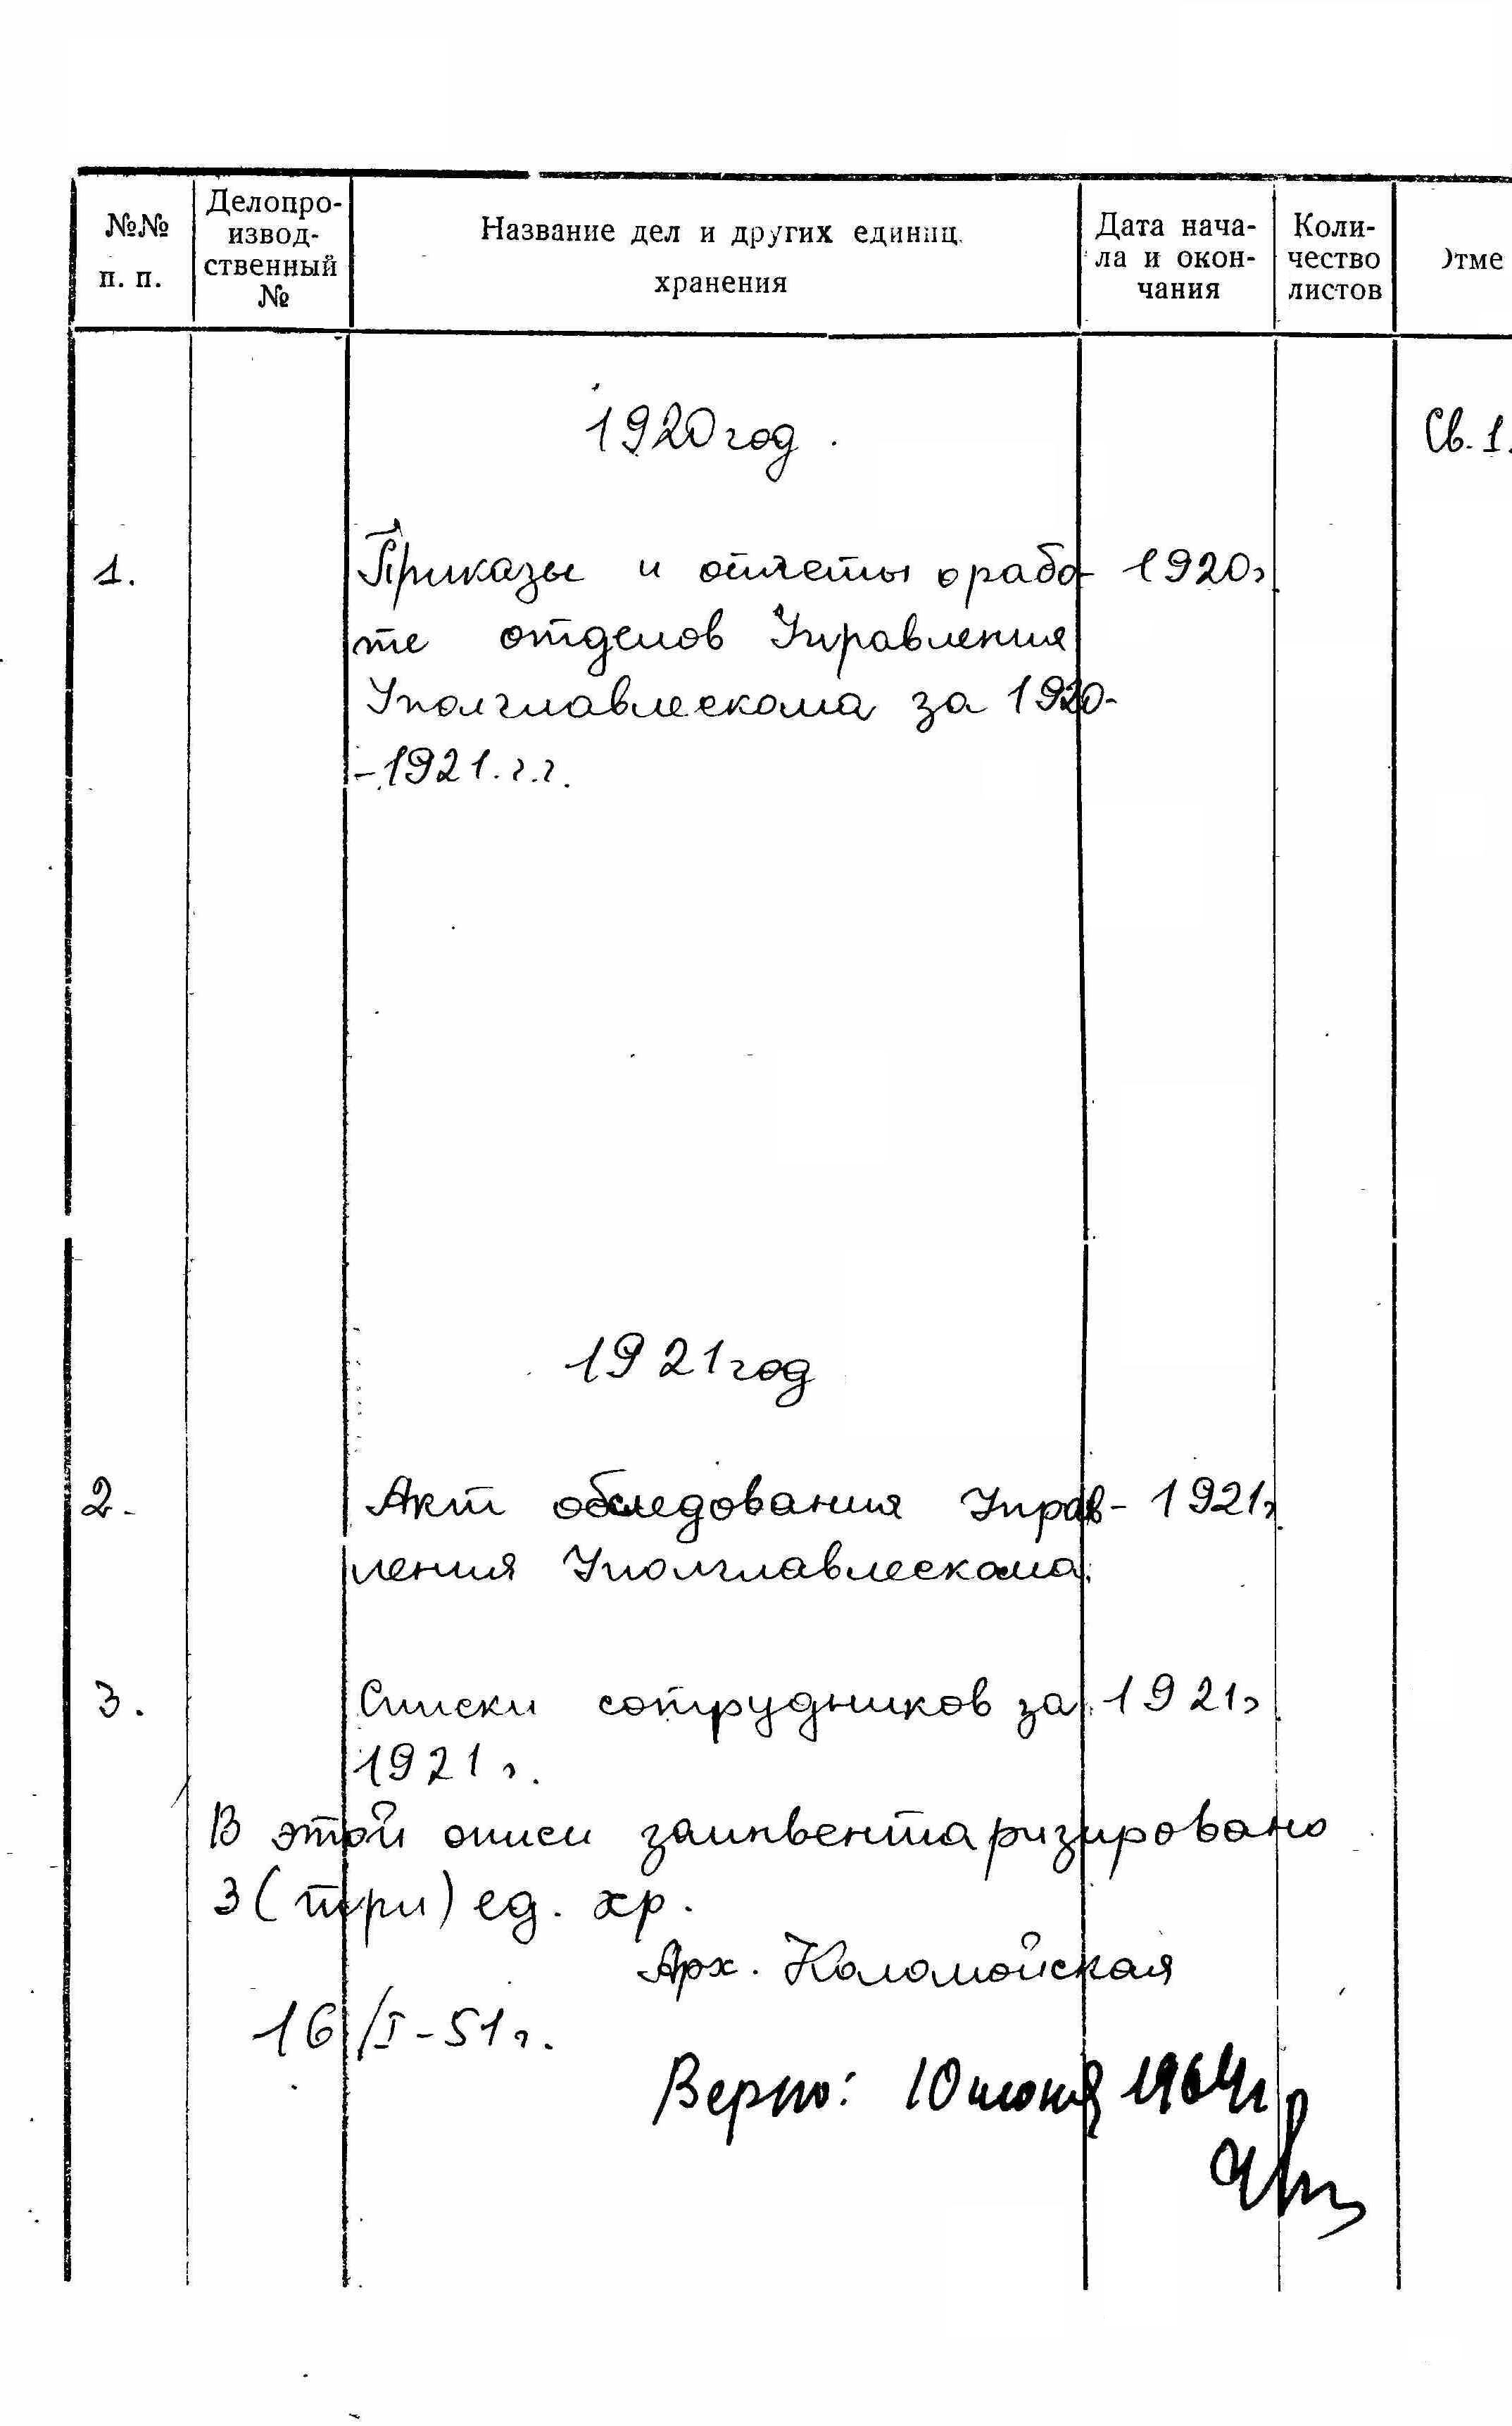 №№ п. п.
Делопро-
извод-
ственный
№
Название дел и других единиц
хранения
Дата нача-
ла и окон-
чания
Коли-
чество
листов
Отме
1920 год.
Св. 1.
1. Приказы и отчеты о рабо- 1920г
те отделов Управления
Уполглавлескома за 1920-
-1921.г.г.
1921 год
2. Акт обследования Управ- 1921г
ления Уполглавлескома.
3. Списки сотрудников за 1921г
1921 г.
В этой описи заинвентаризировано
3 (три) ед. хр.
Арх. Коломойская
16/I-51г.
Верно: 10 июня 1964г